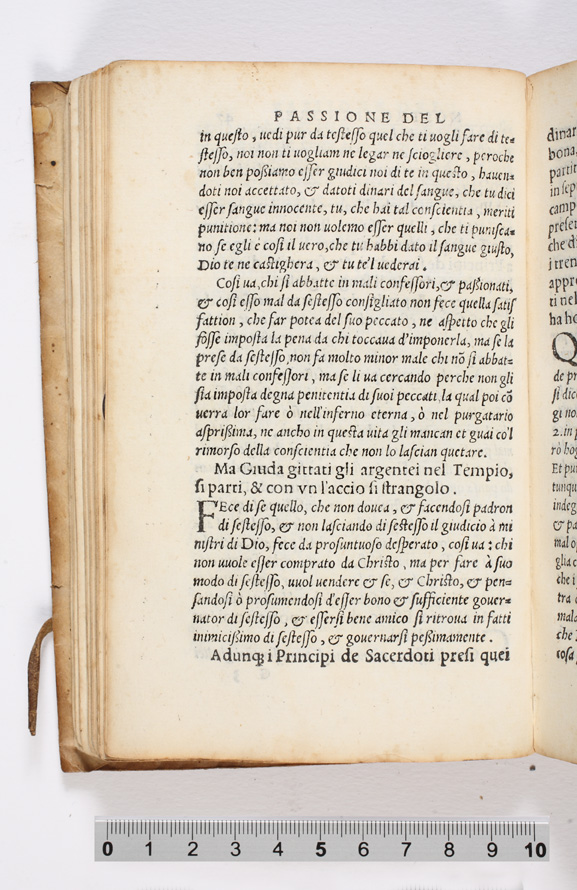 PASSIONE DEL
in questo, uedi pur da testesso quel che ti uogli fare di te-
stesso, noi non ti uogliam ne legar ne sciogliere, peroche
non ben possiamo esser giudici noi di te in questo, hauen-
doti noi accettato, & datoti dinari del sangue, che tu dici
esser sangue innocente, tu, che hai tal conscientia, meriti
punitione: ma noi non uolemo esser quelli, che ti punisca-
no se egli è così il uero, che tu habbi dato il sangue giusto,
Dio te ne castighera, & tu te'l uederai.
Cosi ua, chi si abbatte in mali confessori, & passionati,
& così esso mal da sestesso consigliato non fece quella satis
fattion, che far potea del suo peccato, ne aspetto che gli
fosse imposta la pena da chi toccaua d'imponerla, ma se la
prese da sestesso, non fa molto minor male chi nō si abbat-
te in mali confessori, ma se li ua cercando perche non gli
sia imposta degna penitentia di suoi peccati, la qual poi cō
uerra lor fare ò nell'inferno eterna, ò nel purgatario
asprissima, ne ancho in questa uita gli mancan et guai co'l
rimorso della conscientia che non lo lascian quetare.
Ma Giuda gittati gli argentei nel Tempio,
si parti, & con vn l'accio si strangolo.
FEce di se quello, che non douea, & facendosi padron
di sestesso, & non lasciando di sestesso il giudicio à mi
nistri di Dio, fece da prosuntuoso desperato, così ua: chi
non uuole esser comprato da Christo, ma per fare à suo
modo di sestesso, uuol uendere & se, & Christo, & pen-
sandosi ò prosumendosi d'esser bono & sufficiente gouer-
nator di sestesso, & essersi bene amico si ritroua in fatti
inimicissimo di sestesso, & gouernarsi pessimamente.
Adunq; i Principi de Sacerdoti presi quei
dinar
bona,
partit
in sep
camp
preser
che d
i tren
appre
ti nel
ha ho
Q
de pr
si dic
gi no
2. in p
rò hog
Et pu
tunqu
indeg
& pa
mal o
glia c
che i
tra
mala
che
cosa
0 1 2 3 4 5 6 7 8 9 10